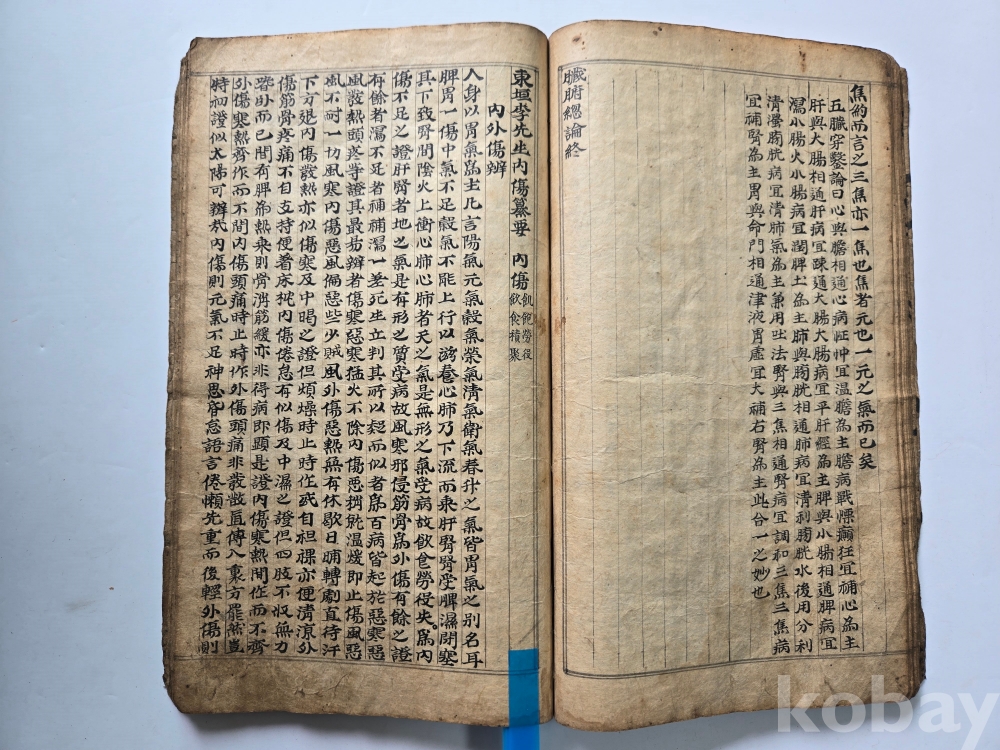 焦約而言之三焦亦一焦也焦者元也一元之氣而已矣
五臟穿鑿論曰心與膽相通心病怔忡宜溫膽為主膽病戰慄癲狂宜補心為主
肝與大腸相通肝病宜疎通大腸大腸病宜平肝經為主脾與小腸相通脾病宜
瀉小腸火小腸病宜潤脾土為主肺與膀胱相通肺病宜清利膀胱水後用分利
清濁膀胱病宜清肺氣為主兼用吐法腎與三焦相通腎病宜調和三焦三焦病
宜補腎為主胃與命門相通津液胃虛宜大補右腎為主此合一之妙也
臟腑總論終
東垣李先生內傷纂要 內傷 飢飽勞役 飲食積聚
內外傷辨
人身以胃氣為主凡言陽氣元氣穀氣榮氣清氣衛氣春升之氣皆胃氣之別名耳
脾胃一傷中氣不足穀氣不能上行以滋養心肺乃下流而乘肝腎腎受脾濕閉塞
其下致腎間陰火上衝心肺心肺者天之氣是無形之氣受病故飲食勞役失為內
傷不足之證肝腎者地之氣是有形之質受病故風寒邪侵筋骨為外傷有餘之證
有餘者瀉不足者補補瀉一差死生立判其所以疑而似者為百病皆起於惡寒惡
風發熱頭疼等證其最易辨者傷寒惡寒猛火不除內傷惡稍就溫煖即止傷風惡
風不耐一切風寒內傷惡風偏惡些少賊風外傷惡熱無有休歇日晡轉劇直待汗
下方退內傷發熱亦似傷寒及中暍之證但煩燥時止時作或自袒裸亦便清涼外
傷筋骨疼痛不自支持便着床枕內傷倦怠有似傷及中濕之證但四肢不收無力
嗜卧而已間有脾為熱乘則骨消筋緩亦非得病即顯是證內傷寒熱間作而不齊
外傷寒熱齊作而不間內傷頭痛時止時作外傷頭痛非發散直傳入裏方罷然豈
時初證似太陽可辨哉內傷則元氣不足神思昏怠語言倦懶先重而後輕外傷則
kobay